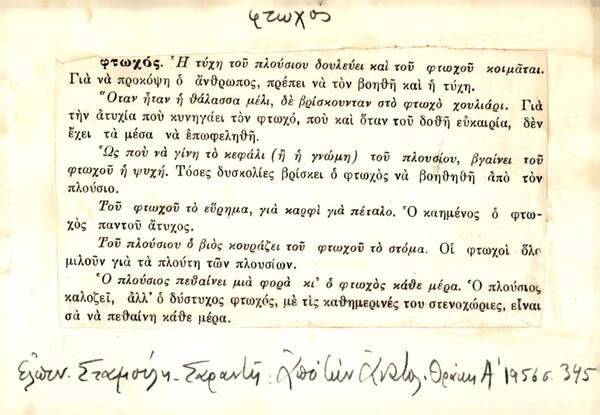 φτωχός
φτωχός. Ἡ τύχη τοῦ πλούσιου δουλεύει καὶ τοῦ φτωχοῦ κοιμᾶται.
Γιὰ νὰ προκόψη ὁ ἄνθρωπος, πρέπει νὰ τὸν βοηθῆ καὶ ἡ τύχη.
Ὅταν ἦταν ἡ θάλασσα μέλι, δὲ βρίσκουνταν στὸ φτωχὸ χουλιάρι. Γιὰ
τὴν ἀτυχία ποὺ κυνηγάει τὸν φτωχό, ποὺ καὶ ὅταν τοῦ δοθῆ εὐκαιρία, δὲν
ἔχει τὰ μέσα νὰ ἐπωφεληθῆ.
Ὡς ποὺ νὰ γίνη τὸ κεφάλι (ἢ ἡ γνώμη) τοῦ πλουσίου, βγαίνει τοῦ
φτωχοῦ ἡ ψυχή. Τόσες δυσκολίες βρίσκει ὁ φτωχὸς νὰ βοηθηθῆ ἀπὸ τὸν
πλούσιο.
Τοῦ φτωχοῦ τὸ εὕρημα, γιὰ καρφὶ γιὰ πέταλο. Ὁ καημένος ὁ φτω-
χὸς παντοῦ ἄτυχος.
Τοῦ πλούσιου ὁ βιὸς κουράζει τοῦ φτωχοῦ τὸ στόμα. Οἱ φτωχοὶ ὅλο
μιλοῦν γιὰ τὰ πλούτη τῶν πλουσίων.
Ὁ πλούσιος πεθαίνει μιὰ φορὰ κι' ὁ φτωχὸς κάθε μέρα. Ὁ πλούσιος
καλοζεῖ, ἀλλ' ὁ δύστυχος φτωχός, μὲ τὶς καθημερινές του στενοχώριες, εἶναι
σὰ νὰ πεθαίνη κάθε μέρα.
Ἐλπιν. Σταμούλη - Σαραντῆ: Ἀπὸ τὴν Ἀνατολ. Θράκη Α' 1956 σ. 345